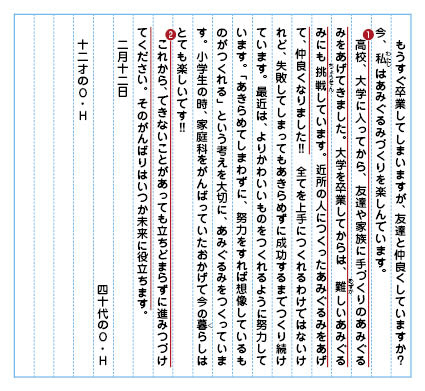 もうすぐ卒業してしまいますが、友達と仲良くしていますか?
今、私はあみぐるみづくりを楽しんでいます。
❶高校、大学に入ってから、友達や家族に手づくりのあみぐる
みをあげてきました。大学を卒業してからは、難しいあみぐる
みにも挑戦しています。近所の人につくったあみぐるみをあげ
て、仲良くなりました!! 全てを上手につくれるわけではないけ
れど、失敗してしまってもあきらめずに成功するまでつくり続け
ています。最近は、よりかわいいものをつくれるように努力して
います。「あきらめてしまわずに、努力をすれば想像しているも
のがつくれる」という考えを大切に、あみぐるみをつくっていま
す。小学生の時、家庭科をがんばっていたおかげで今の暮らしは
とても楽しいです!!
❷これから、できないことがあっても立ちどまらずに進みつづけ
てください。そのがんばりはいつか未来に役立ちます。
二月十二日
四十代のO・H
十二才のO・H